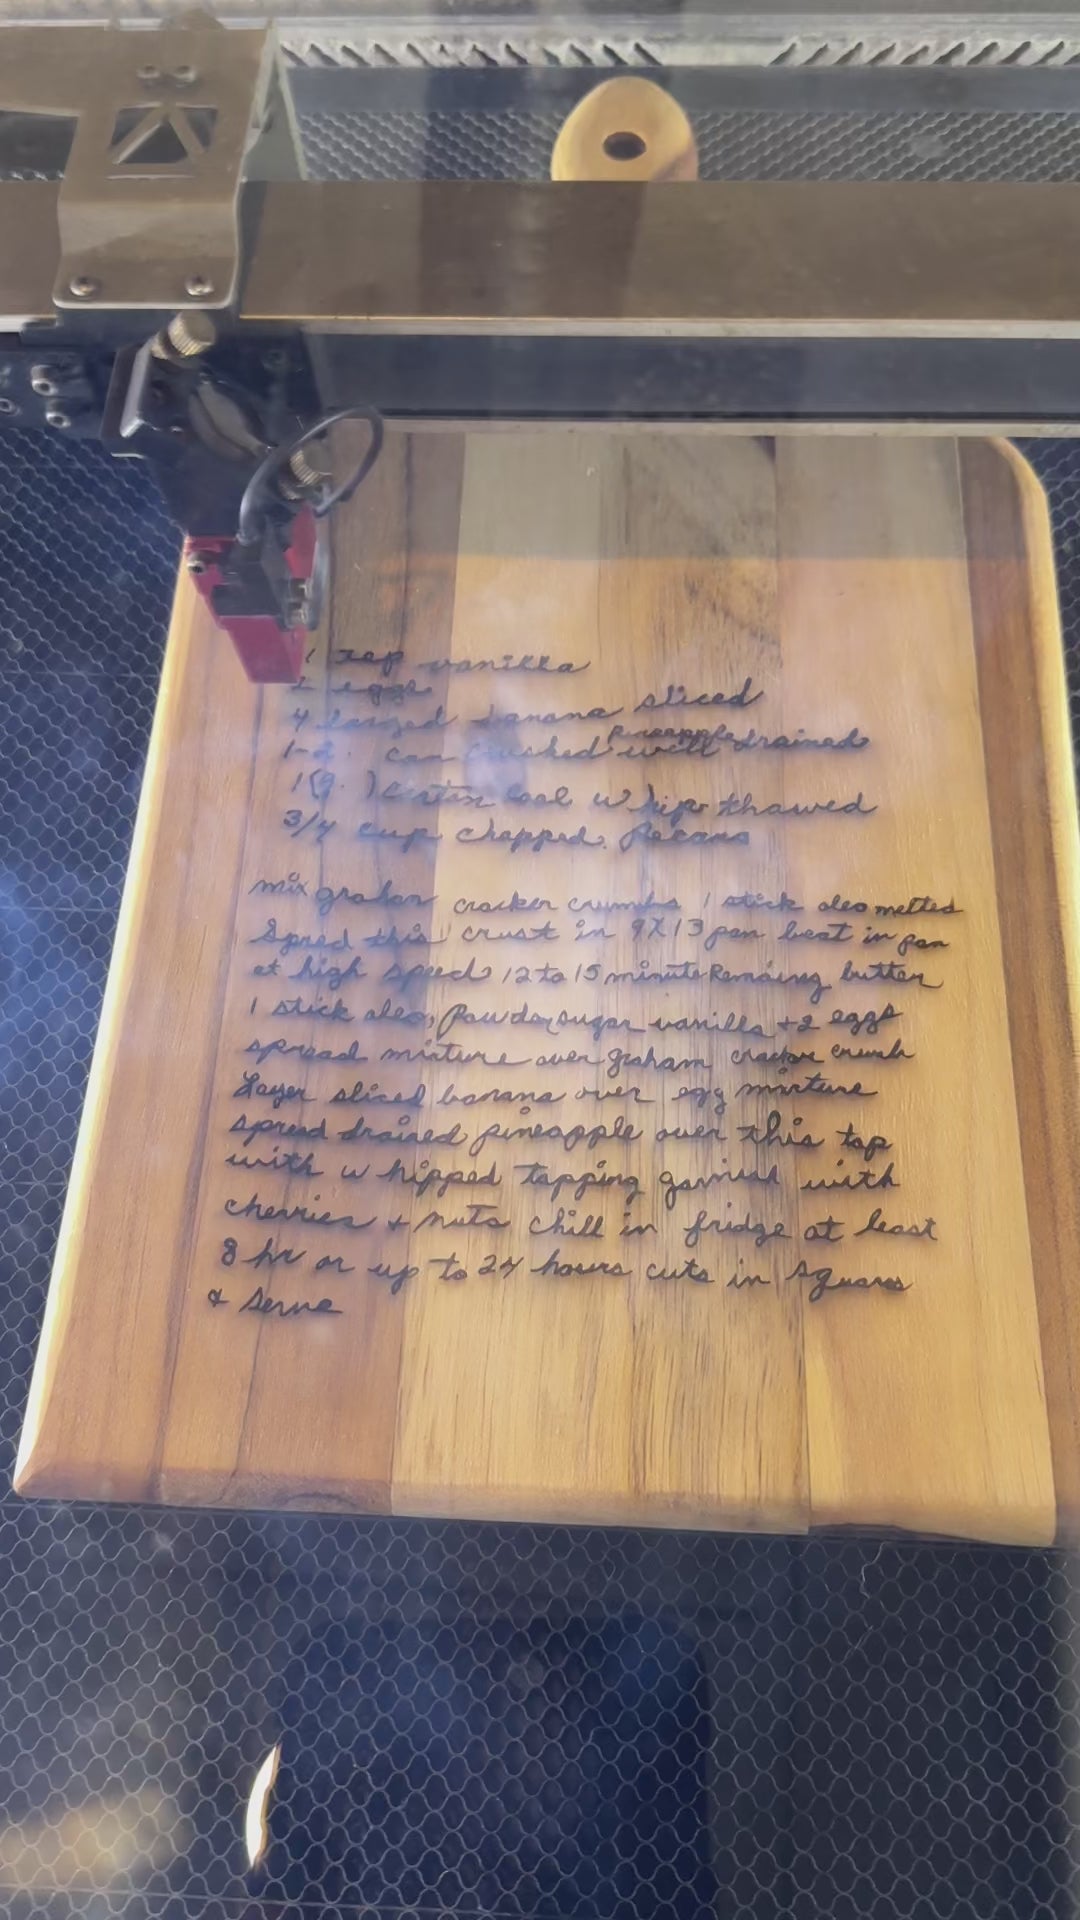 1 tsp vanilla
2 eggs
4 larged banana sliced
1-2. can crushed pineapple well drained
1 (9. ) carton cool whip thawed
3/4 cup chopped. Pecans
mix graham cracker crumbs 1 stick oleo melted
Spred this crust in 9X13 pan beat in pan
at high speed 12 to 15 minute Remaing butter
1 stick oleo, Powder sugar vanilla +2 eggs
spread mixture over graham cracker crumb
Layer sliced banana over egg mixture
spread drained pineapple over this top
with whipped topping garnish with
cherries + nuts chill in fridge at least
8 hr or up to 24 hours cuts in squares
& serve